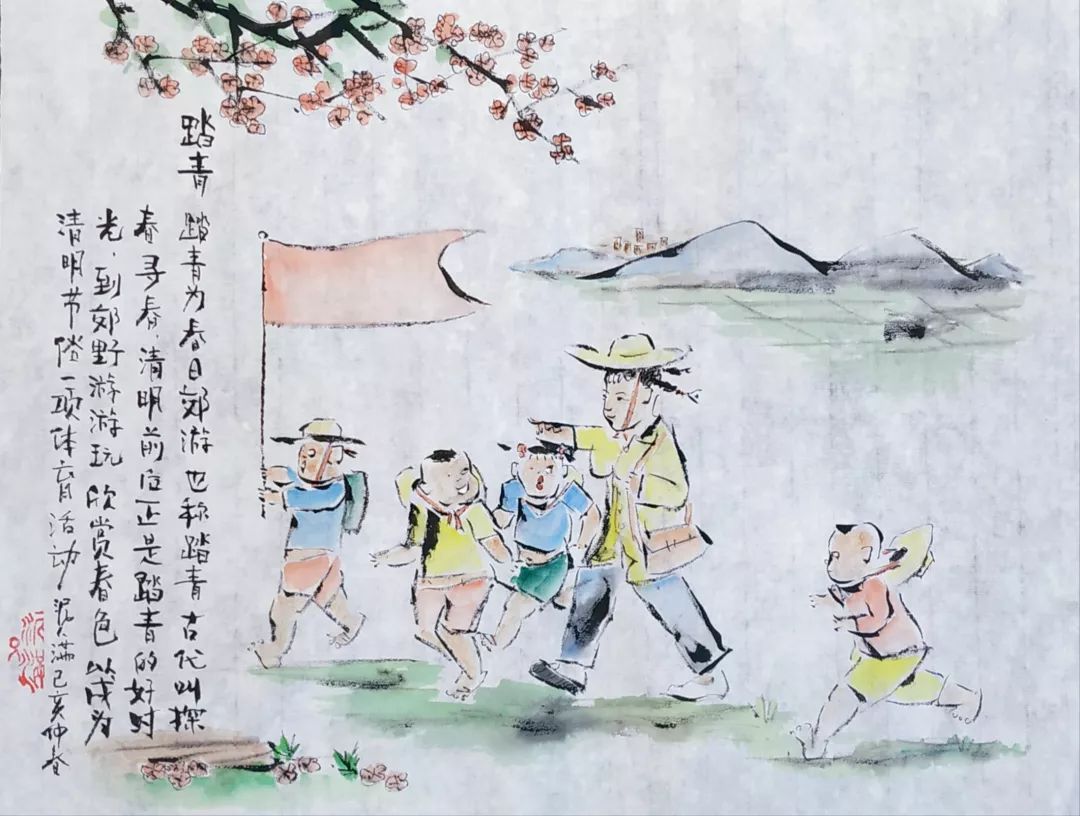 踏青
踏青为春日郊游也称踏青古代叫探
春寻春，清明前后正是踏青的好时
光，到郊野游游玩欣赏春色以成为
清明节俗一项体育活动 满己亥仲春